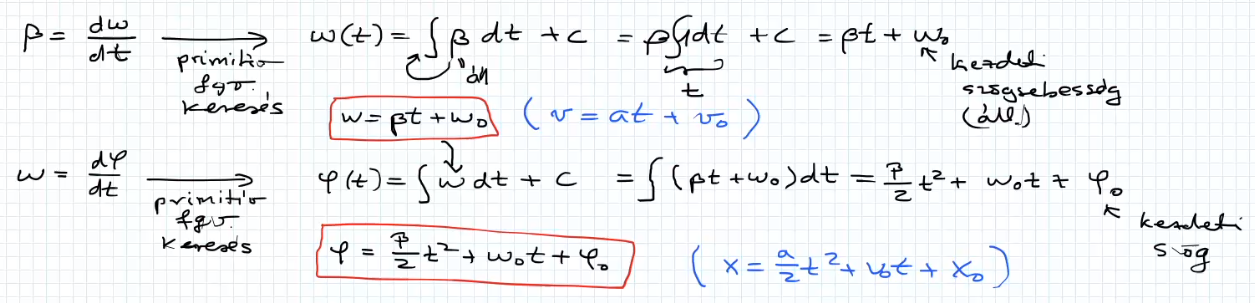 β = dω/dt → primitív fgv. keresés ω(t) = ∫ β dt + c = β ∫1dt + c = βt + ω₀
áll t ↖ kezdeti szögsebesség (áll.)
ω = βt + ω₀ ( v = at + v₀ )
ω = dφ/dt → primitív fgv. keresés φ(t) = ∫ ω dt + c = ∫ (βt + ω₀) dt = β/2 t² + ω₀t + φ₀
↖ kezdeti szög
φ = β/2 t² + ω₀t + φ₀ ( x = a/2 t² + v₀t + x₀ )